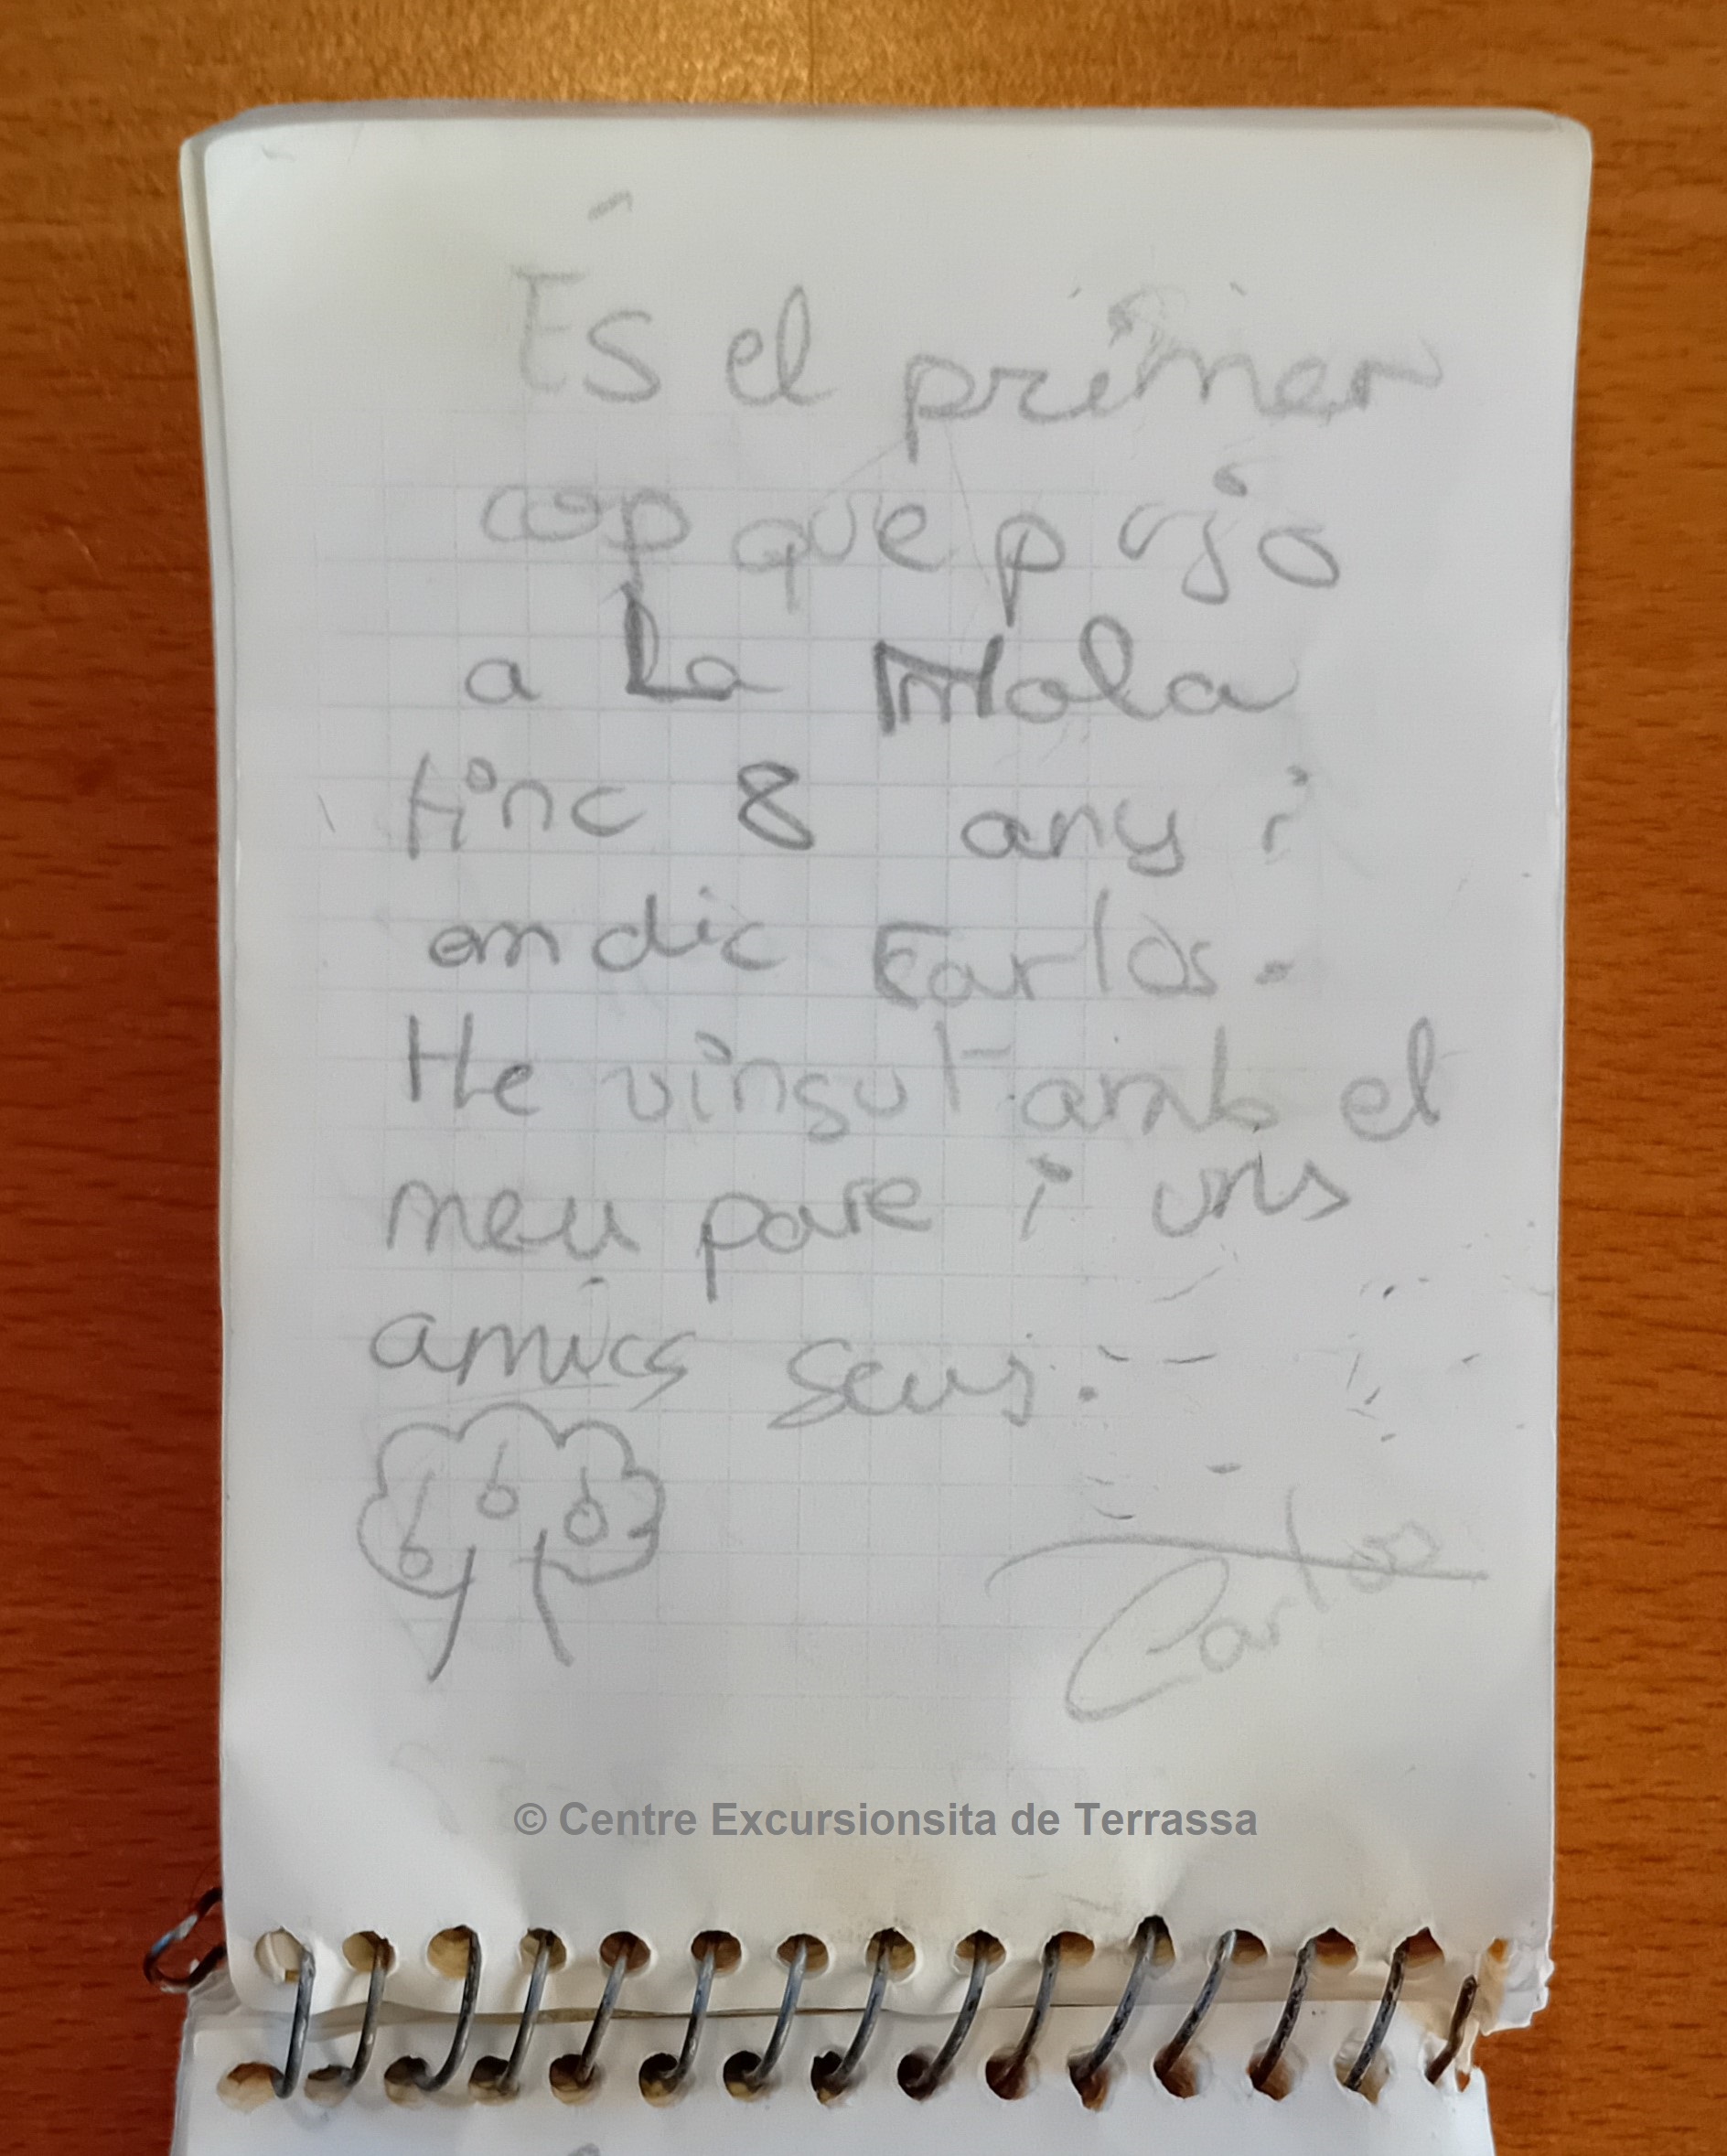 És el primer
cop que pujo
a La Mola
tinc 8 any i
em dic Carlos.
He vingut amb el
meu pare i uns
amics seus.
Carlos
© Centre Excursionsita de Terrassa